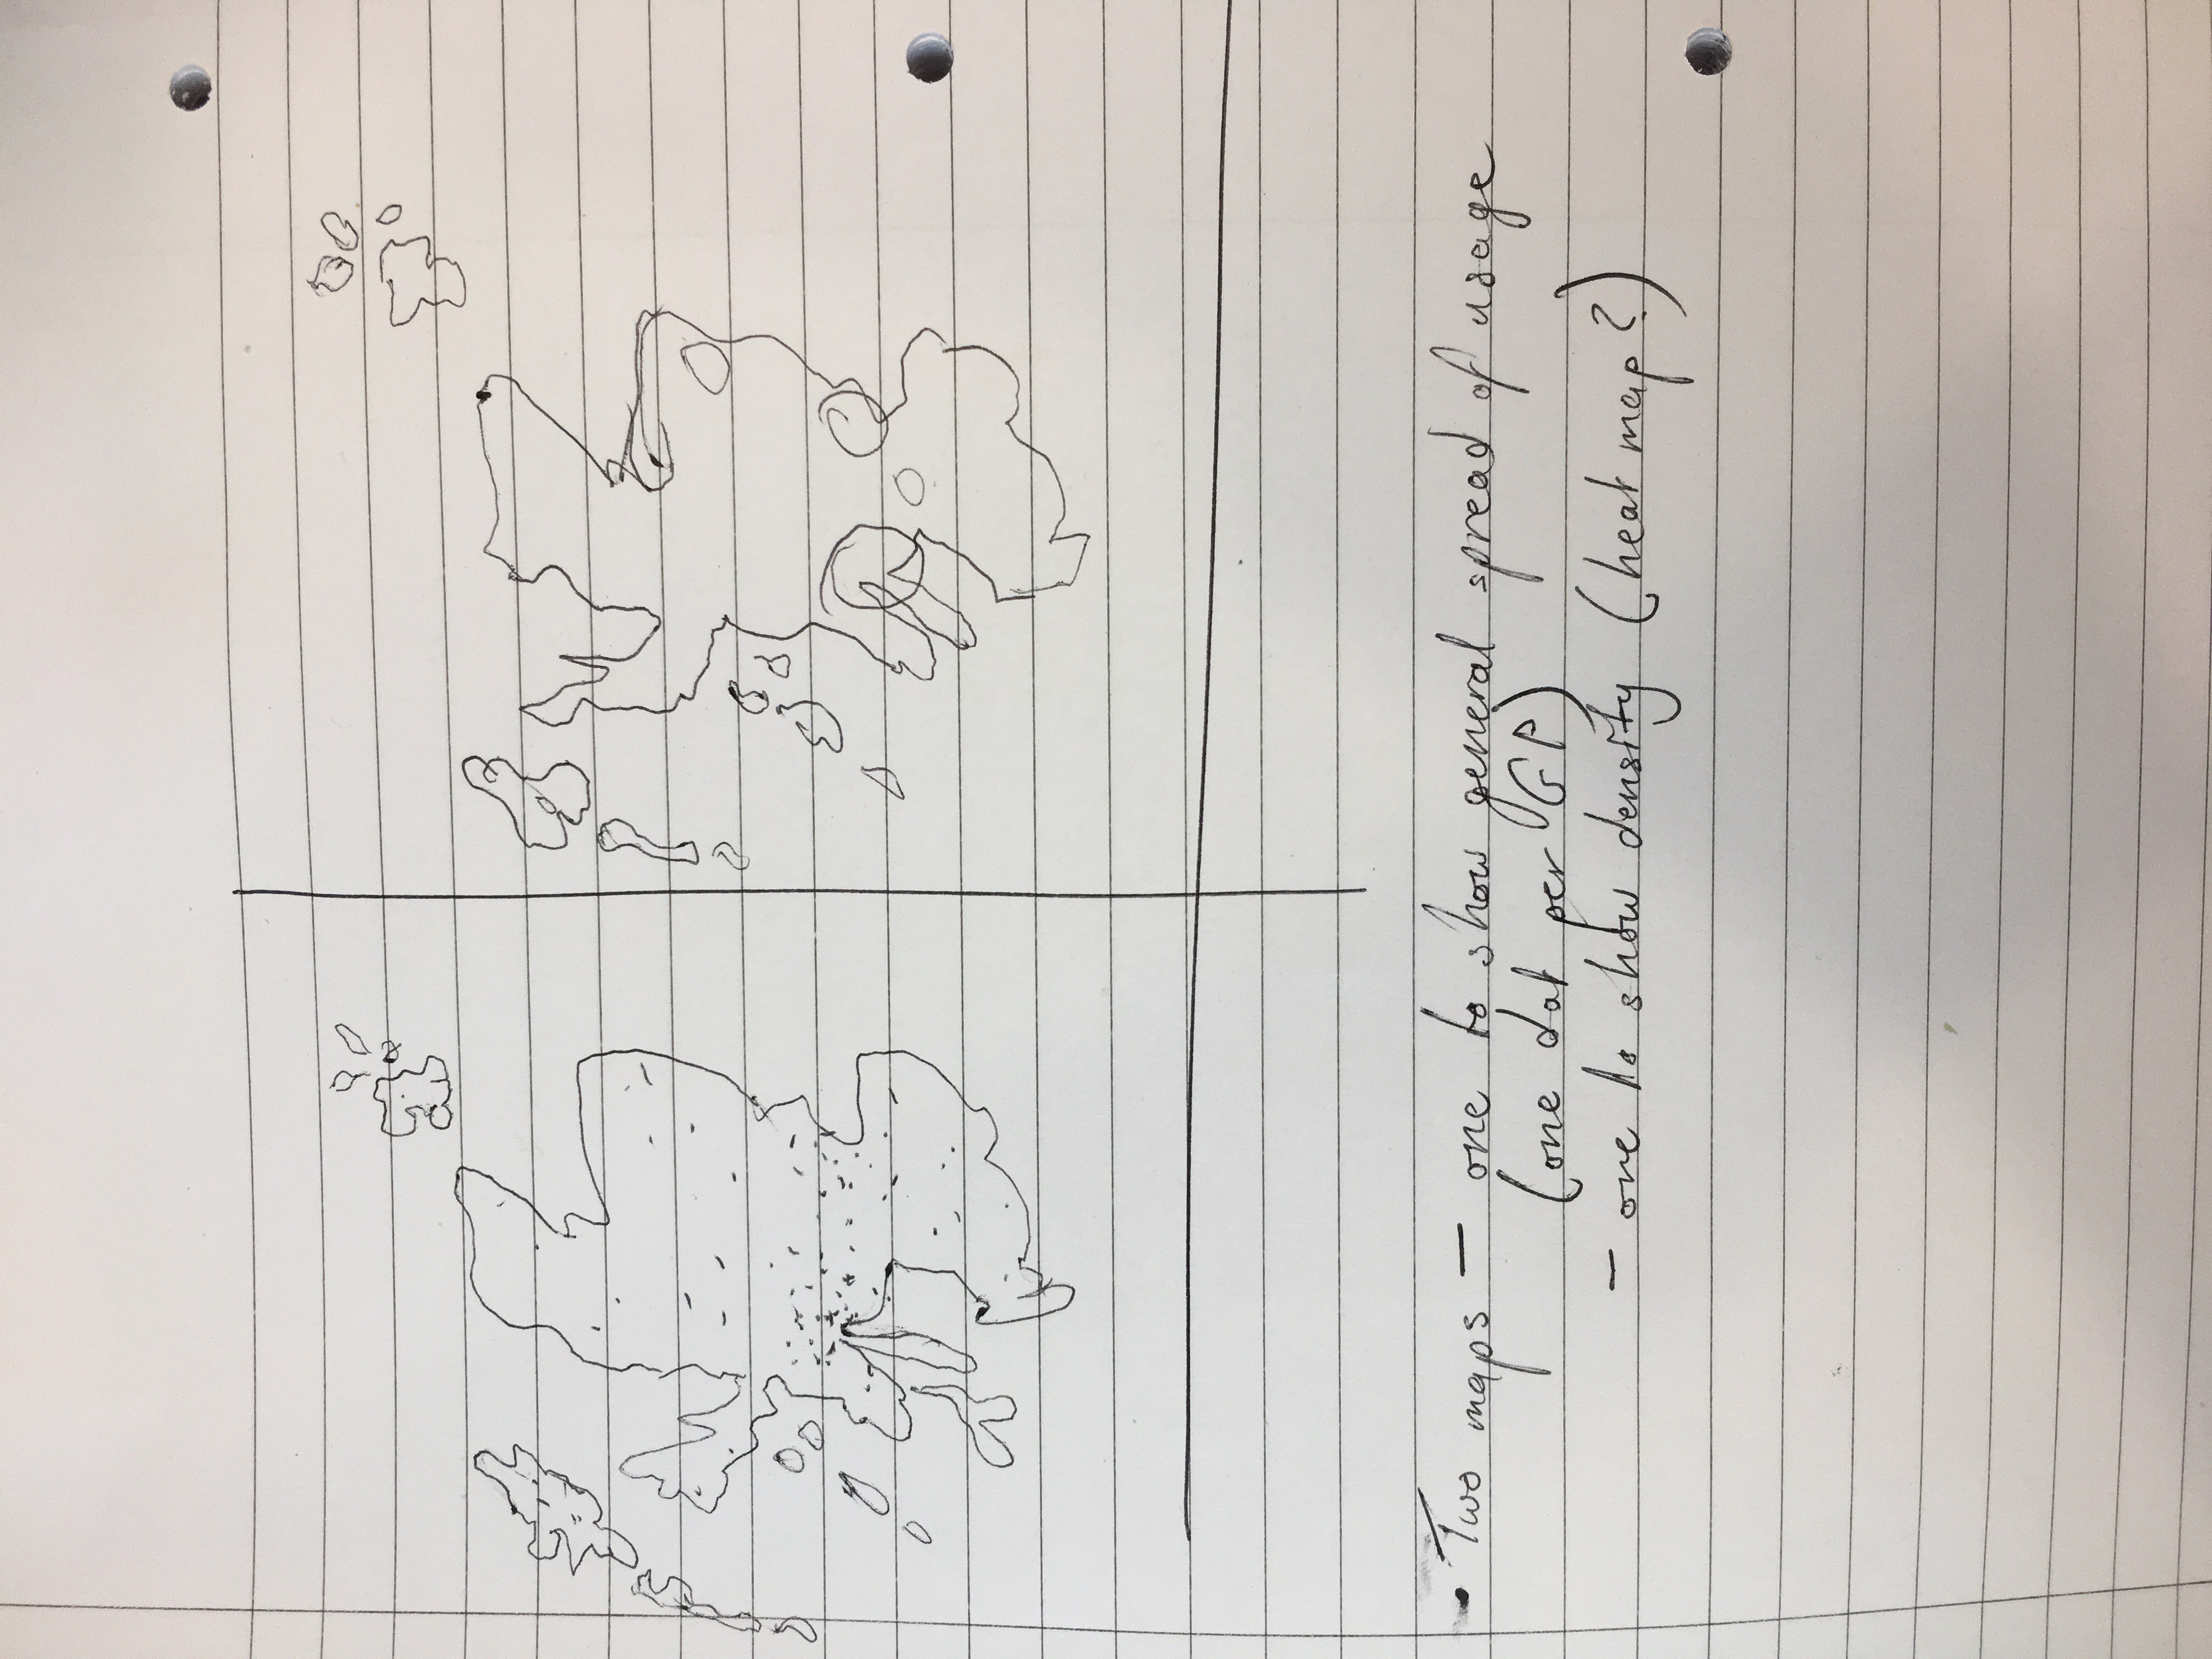 • Two maps — one to show general spread of usage
(one dot per GP)
— one to show density (heat map?)